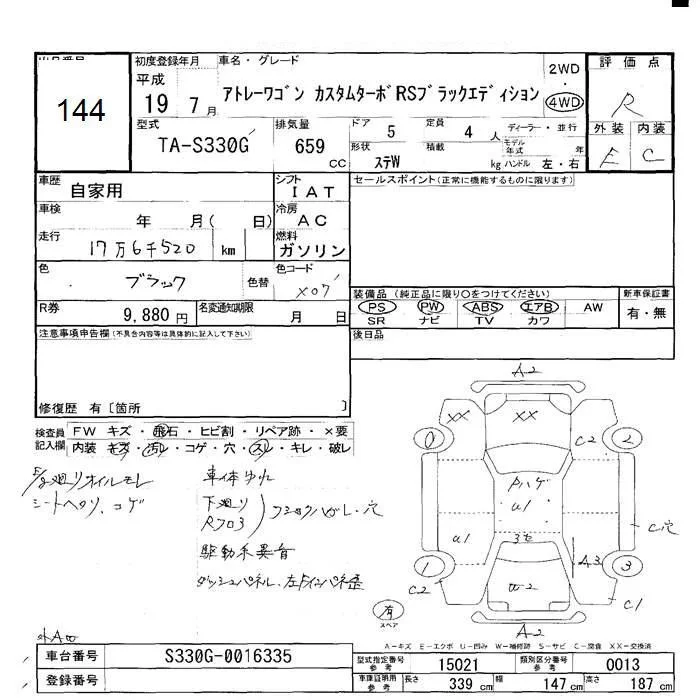 初度登録年月 車名・グレード 評価点
144
平成
19 7月 アトレーワゴン カスタムターボRSブラックエディション 2WD 4WD R
型式 排気量 ドア 5 定員 4 人 ディーラー・並行 外装 内装
TA-S330G 659 CC 形状 ステW 積載 kg モデル年式 年 ハンドル 左・右 E C
車歴 自家用 シフト IAT セールスポイント(正常に機能するものに限ります)
車検 年 月( 日) 冷房 AC
走行 17万6千520 km 燃料 ガソリン
色 ブラック 色替 色コード X07
装備品(純正品に限り○をつけてください) 新車保証書
R券 9,880円 名変通知期限 月 日 PS PW ABS エアB AW 有・無
SR ナビ TV カワ
注意事項申告欄(不具合内容等は具体的に記入して下さい) 後日品
修復歴 有〔箇所 〕
検査員記入欄 FW キズ・飛石・ヒビ割・リペア跡・×要
内装 キズ・汚れ・コゲ・穴・スレ・キレ・破レ
下廻りオイルモレ
シートヘタリ、コゲ
車体ゆれ
下廻り
Rフロア
駆動系異音
A2
XX XX
0 C2 2
Pハゲ
U1
U1 3セ C穴
A3
1 3
C2 W2 C1
有 スペア
A2
A-キズ E-エクボ U-凹み W-補修跡 S-サビ C-腐食 XX-交換済
車台番号 S330G-0016335 型式指定番号 参考 15021 類別区分番号 参考 0013
登録番号 車庫証明用 参考 長さ 339 cm 幅 147 cm 高さ 187 cm